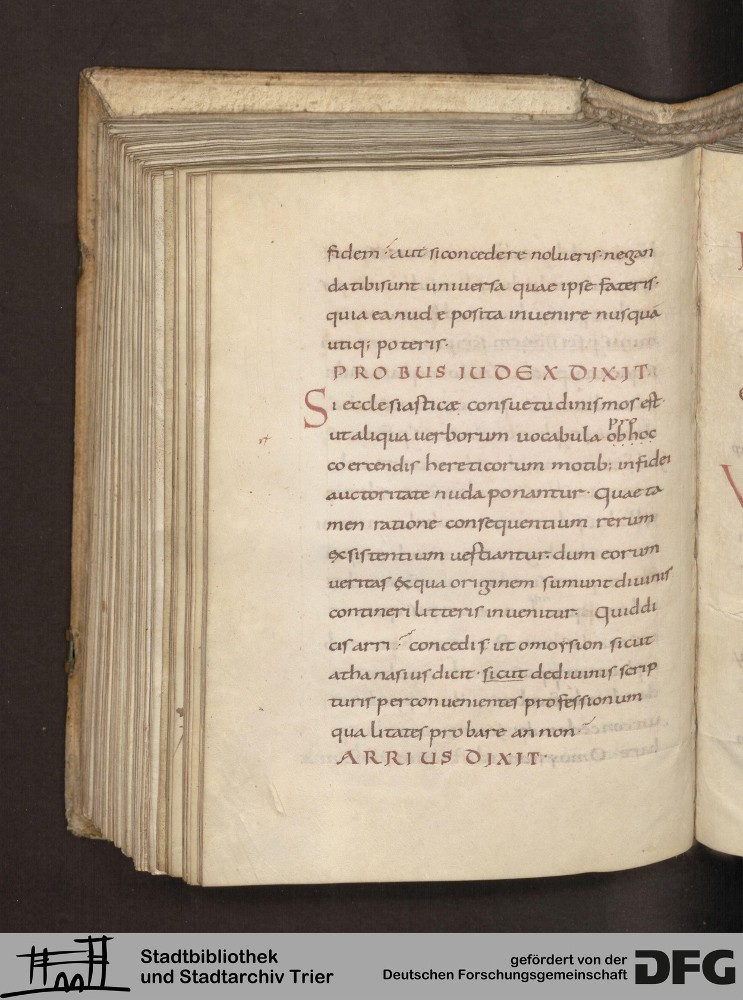 fidem aut siconcedere nolueris negan
datibisunt universa quae ipse fateris·
quia eanud e posita inuenire nusquā
utiq; poteris·
PROBUS IUDEX DIXIT
Si ecclesiasticę consuetudinismos est·
pro
utaliqua uerborum uocabula obhoc
coercendis hereticorum motib; infidei
auctoritate nuda ponantur· Quaeta
men ratione consequentium rerum
exsistentium uestiantur· dum eorum
ueritas exqua originem sumunt diuinis
contineri litteris inuenitur· Quiddi
cisarri concedis ut omoysion sicut
athanasius dicit· sicut dediuinis scrip
turis perconuenientes professionum
qualitates probare annon
ARRIUS DIXIT·
Stadtbibliothek
und Stadtarchiv Trier
gefördert von der
Deutschen Forschungsgemeinschaft
DFG